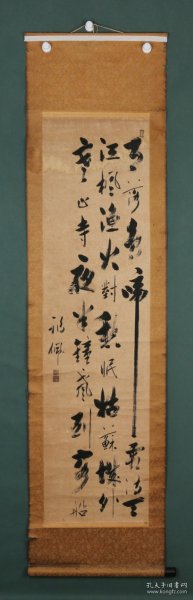 月落烏啼霜満天
江楓漁火對愁眠姑蘇城外
寒山寺夜半鐘聲到客船
孔夫子旧书网
www.kongfz.com